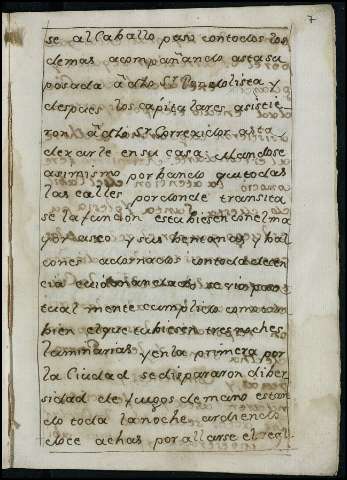 7
se al Caballo paso con todos los
demas acompañando asta su
posada â dho Sr Pendolisea y
despues los capitulares asistie-
ron â dho Sr Correxidor asta
dexarle en su casa: Mandose
asimismo por bando que todas
las calles por donde transita
se la funcion estubiesen con el ma
yor aseo y sus bentanas y bal
cones adornados con toda decen
cia cuio mandado se vio pun
tual mente cumplido como tam
bien el que tubiesen tres noches
luminarias y en la primera por
la Ciudad se dispararon diber
sidad de fuegos de mano estan
do toda la noche ardiendo
doce achas por allarse el real